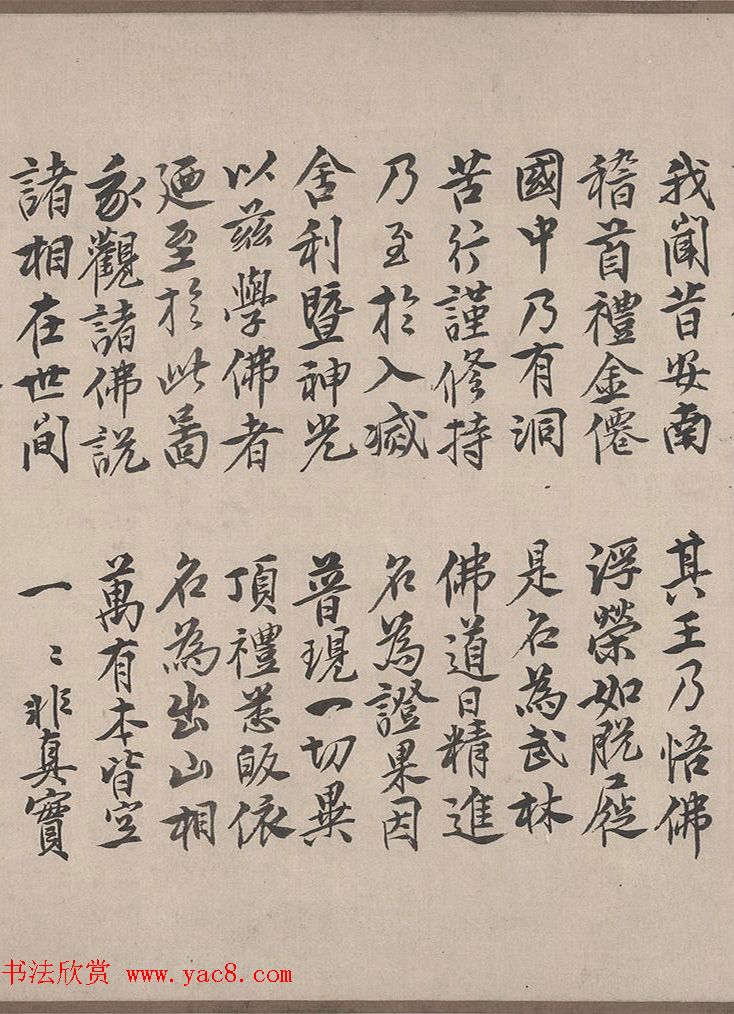 我聞昔安南 其王乃悟佛
稽首禮金僊 浮榮如脫屣
國中乃有洞 是名為武林
苦行謹修持 佛道日精進
乃至於入滅 名為證果因
舍利暨神光 普現一切異
以茲學佛者 頂禮悉皈依
迺至於此圖 名為出山相
我觀諸佛說 萬有本皆空
諸相在世間 一〻非真實
书法欣赏 www.yac8.com